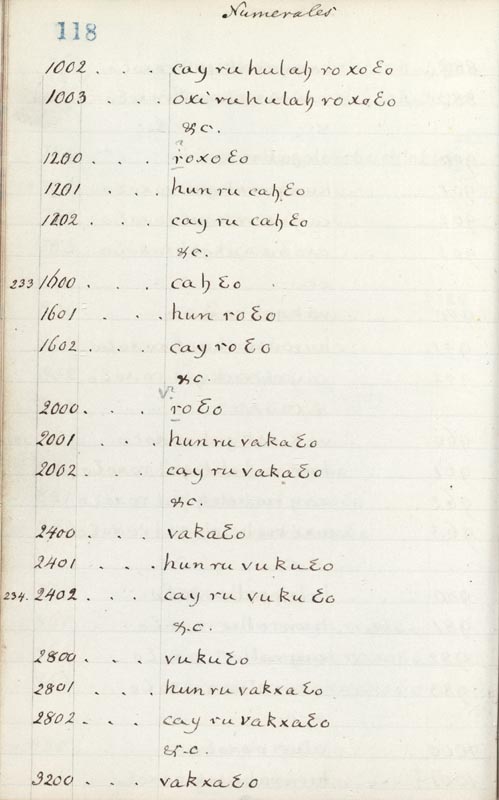 Numerales
118
1002 . . . cay ru hulaɧ ro xo Ɛo
1003 . . . oxi ru hulaɧ ro xo Ɛo
&c.
?
1200 . . . roxo Ɛo
1201 . . . hun ru caɧ Ɛo
1202 . . . cay ru caɧ Ɛo
&c.
233 1600 . . . caɧ Ɛo
1601 . . . hun ro Ɛo
1602 . . . cay ro Ɛo
&c.
2000 . . . ro Ɛo
2001 . . . hun ru vaka Ɛo
2002 . . . cay ru vaka Ɛo
&c.
2400 . . . vaka Ɛo
2401 . . . hun ru vuku Ɛo
234. 2402 . . . cay ru vuku Ɛo
&c.
2800 . . . vuku Ɛo
2801 . . . hun ru vakxa Ɛo
2802 . . . cay ru vakxa Ɛo
&c.
3200 . . . vakxa Ɛo